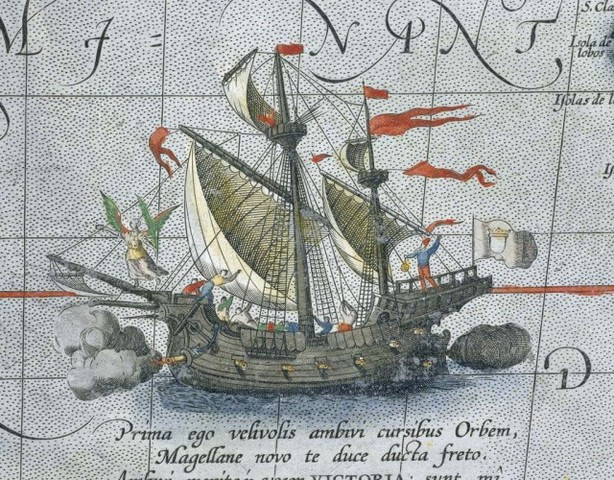 S. Cla
Isola de
lobos
Isolas de l
Is
D
Prima ego velivolis ambivi cursibus Orbem,
Magellane novo te duce ducta freto.
Ambivi, vocor VICTORIA: sunt mî